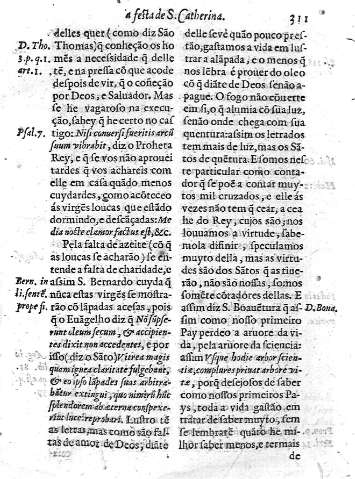 a festa de S. Catherina. 311
delles quer (como diz São
D. Tho. Thomas) q̃ conheção os ho
3.p.q.1. mẽs a necessidade q̃ delle
art.1. tẽ, e na pressa cõ que acode
despois de vir, q̃ o confeção
por Deos, e Saluador. Mas
se he vagaroso na execu-
ção, sabey q̃ he certo no cas
Psal.7. tigo: Nisi conuersi fueritis arcũ
suum vibrabit, diz o Propheta
Rey, e q̃ se vos não aprouei
tardes q̃ vos achareis com
elle em casa quãdo menos
cuydardes, como acõteceo
ás virgẽs loucas que estãdo
dormindo, e descãçadas: Me-
dia nocte clamor factus est, &c.
Pela falta de azeite (cõ q̃
as loucas se acharão) se en-
tende a falta de charidade, e
Bern. in assim S. Bernardo cuyda q̃
li. sentẽ. nũca estas virgẽs se mostra-
prope fi. rão cõ lãpadas acesas, pois
q̃ o Euãgelho diz q̃ Nõ sũpse-
runt oleum secum, & accipien-
tes dixit non accedentes, e por
isso (diz o Sãto) Vitrea magis
quam ignea claritate fulgebant,
& eo ipso lãpades suas arbitrã-
bãtur extingui, quo nimirũ hũc
splendorem ab æterna conspexe-
rint luce reprobari. Lustro tẽ
as letras, mas como são fal-
tas de amor de Deos, diãte
delle seve quão pouco pres-
tão, gastamos a vida em lus-
trar a alãpada, e o menos q̃
nos lẽbra é prouer do oleo
cõ q̃ diãte de Deos se não a-
pague. O fogo não cõuerte
em si, q̃ alumia cõ sua luz,
senão onde chega com sua
quentura: assim os letrados
tem mais de luz, mas os Sã-
tos de quẽtura. E somos nes-
te particular como conta-
dor q̃ se poẽ a contar muy-
tos mil cruzados, e elle ás
vezes não tem q̃ cear, a cea
he do Rey, cujos são; nos
louuamos a virtude, sabe-
mola difinir, speculamos
muyto della, mas as virtu-
des são dos Sãtos q̃ as tine-
rão, não são nossas, somos
somẽte cõradores dellas. E
assim diz S. Boauẽtura q̃ as- D. Bona.
sim como nosso primeiro
Pay perdeo a aruore da vi-
da, pela aruore da sciencia:
assim Vsque hodie arbor scien-
tiæ, complures priuat arbore vi-
tæ, porq̃ desejosos de saber
como nossos primeiros Pa-
ys, toda a vida gastão em
tratar de saber muyto, sem
se lembrarẽ quãto he mi-
lhor saber menos, e ter mais
de